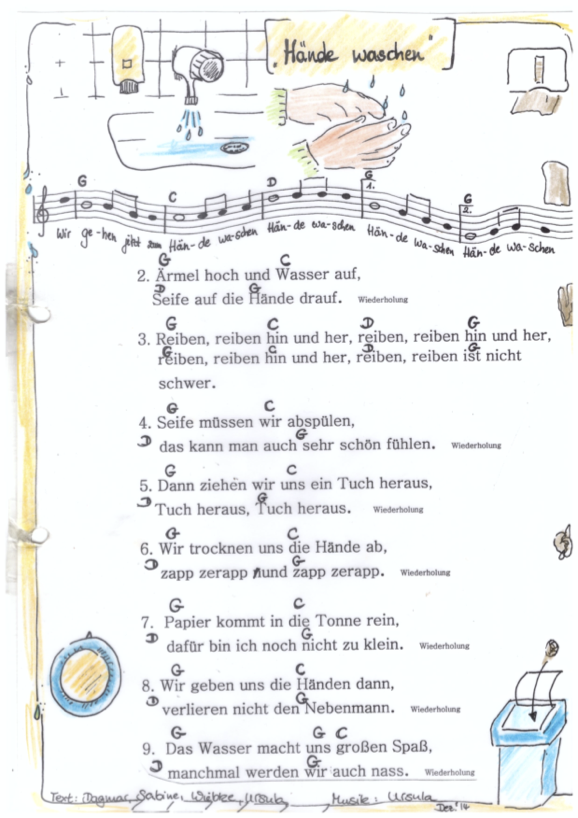 "Hände waschen"
G G C D G 1. G 2.
Wir ge-hen jetzt zum Hän-de wa-schen Hän-de wa-schen Hän-de wa-schen Hän-de wa-schen
G C
2. Ärmel hoch und Wasser auf,
D G
Seife auf die Hände drauf. Wiederholung
G C D G
3. Reiben, reiben hin und her, reiben, reiben hin und her,
G C D G
reiben, reiben hin und her, reiben, reiben ist nicht
schwer.
G C
4. Seife müssen wir abspülen,
D G
das kann man auch sehr schön fühlen. Wiederholung
G C
5. Dann ziehen wir uns ein Tuch heraus,
D G
Tuch heraus, Tuch heraus. Wiederholung
G C
6. Wir trocknen uns die Hände ab,
D G
zapp zerapp und zapp zerapp. Wiederholung
G C
7. Papier kommt in die Tonne rein,
D G
dafür bin ich noch nicht zu klein. Wiederholung
G C
8. Wir geben uns die Händen dann,
D G
verlieren nicht den Nebenmann. Wiederholung
G G C
9. Das Wasser macht uns großen Spaß,
D G
manchmal werden wir auch nass. Wiederholung
Text: Dagmar, Sabine, Wiebke, Ursula Musik: Ursula
Dez. '14